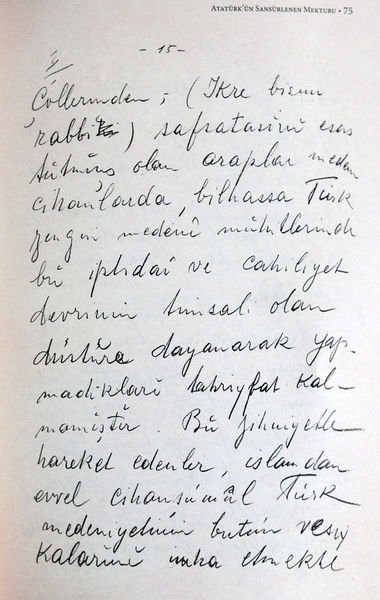 ATATÜRK'ÜN SANSÜRLENEN MEKTUBU • 75
- 15 -
Çöllerinden; (İkre bismi
rabbi) safsatasını esas
tutmuş olan araplar meden
cihanlarda, bilhassa Türk
zengin medenî muhitlerinde
bu iptidaî ve cahiliyet
devrinin timsali olan
düstûra dayanarak yap-
madıkları tahrifat kal-
mamıştır. Bu zihniyetle
hareket edenler, islamdan
evvel cihanşümûl Türk
medeniyetinin bütün vesi-
kalarını imha etmekte